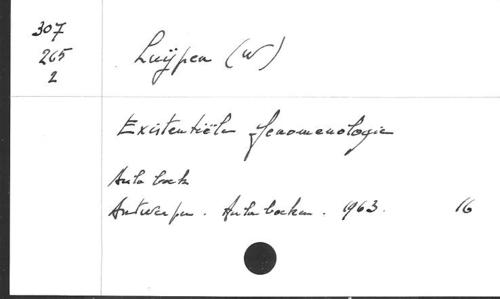 307
265
2
Luÿpen (W)
Existentiële fenomenologie
Aula boek
Antwerpen. Aula boeken. 1963. 16